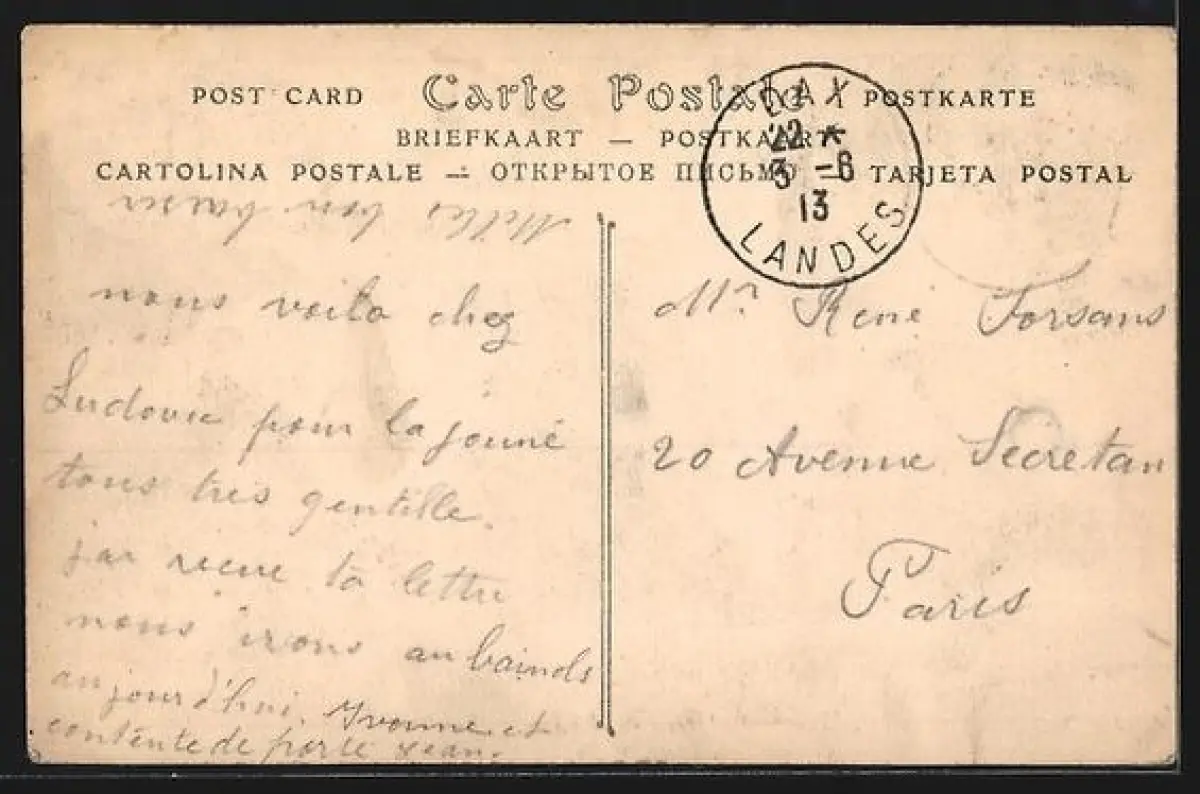 POST CARD Carte Postale POSTKARTE
BRIEFKAART — POSTKAART
CARTOLINA POSTALE — ОТКРЫТОЕ ПИСЬМО — TARJETA POSTAL
DAX
22 *
3 -6
13
LANDES
Milles bon baiser
nous voila chez
Ludovic pour la journé
tous tres gentille.
j'ai recue ta lettre
nous irons au bainds
aujourd'hui. Yvonne et
contente de porte Jean.
Mr René Forsans
20 Avenue Secretan
Paris